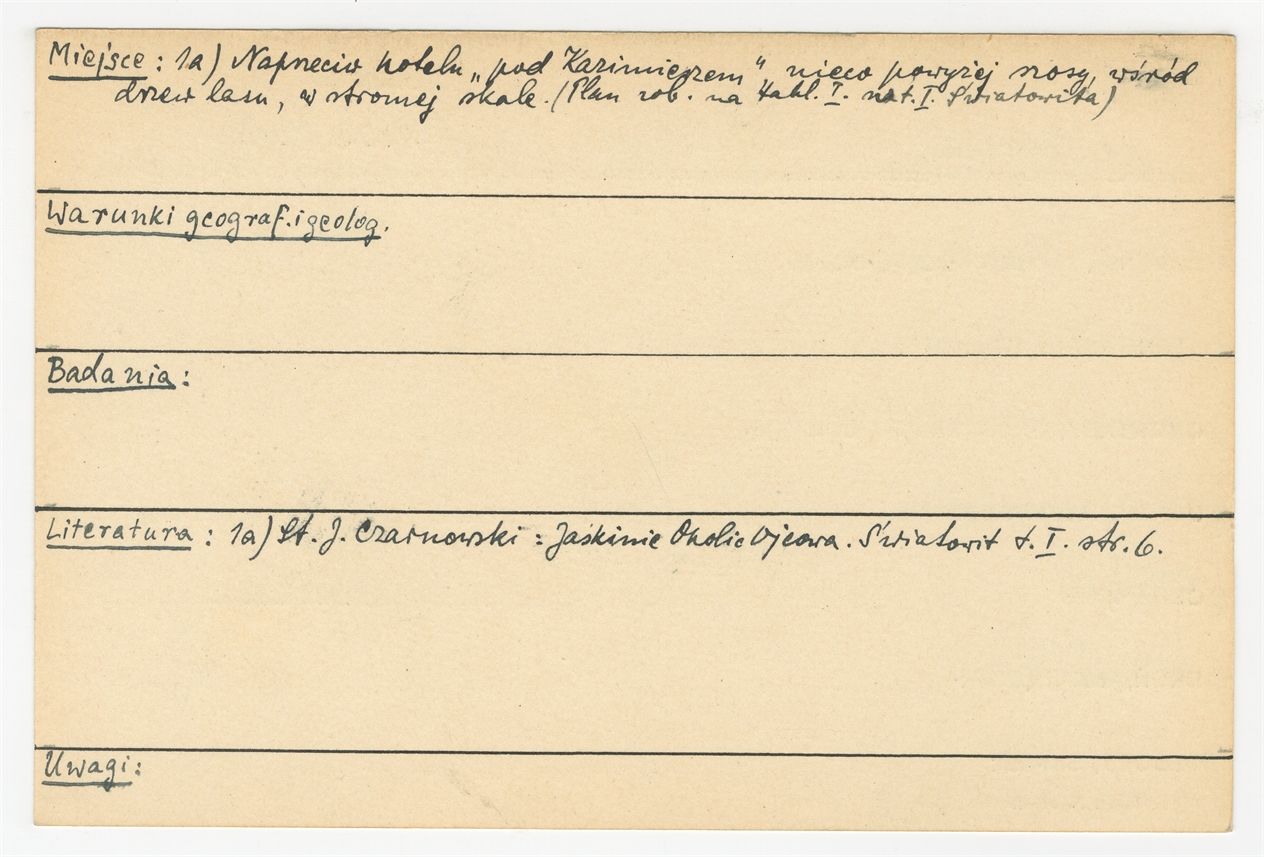 Miejsce: 1a) Naprzeciw hotelu „pod Kazimierzem" nieco powyżej szosy, wśród
drzew lasu, w stromej skale. (Plan zob. na tabl. I. t. I. Światowita)
Warunki geograf. i geolog.
Badania:
Literatura: 1a) St. J. Czarnowski: Jaskinie Okolic Ojcowa. Światowit t. I. str. 6.
Uwagi: